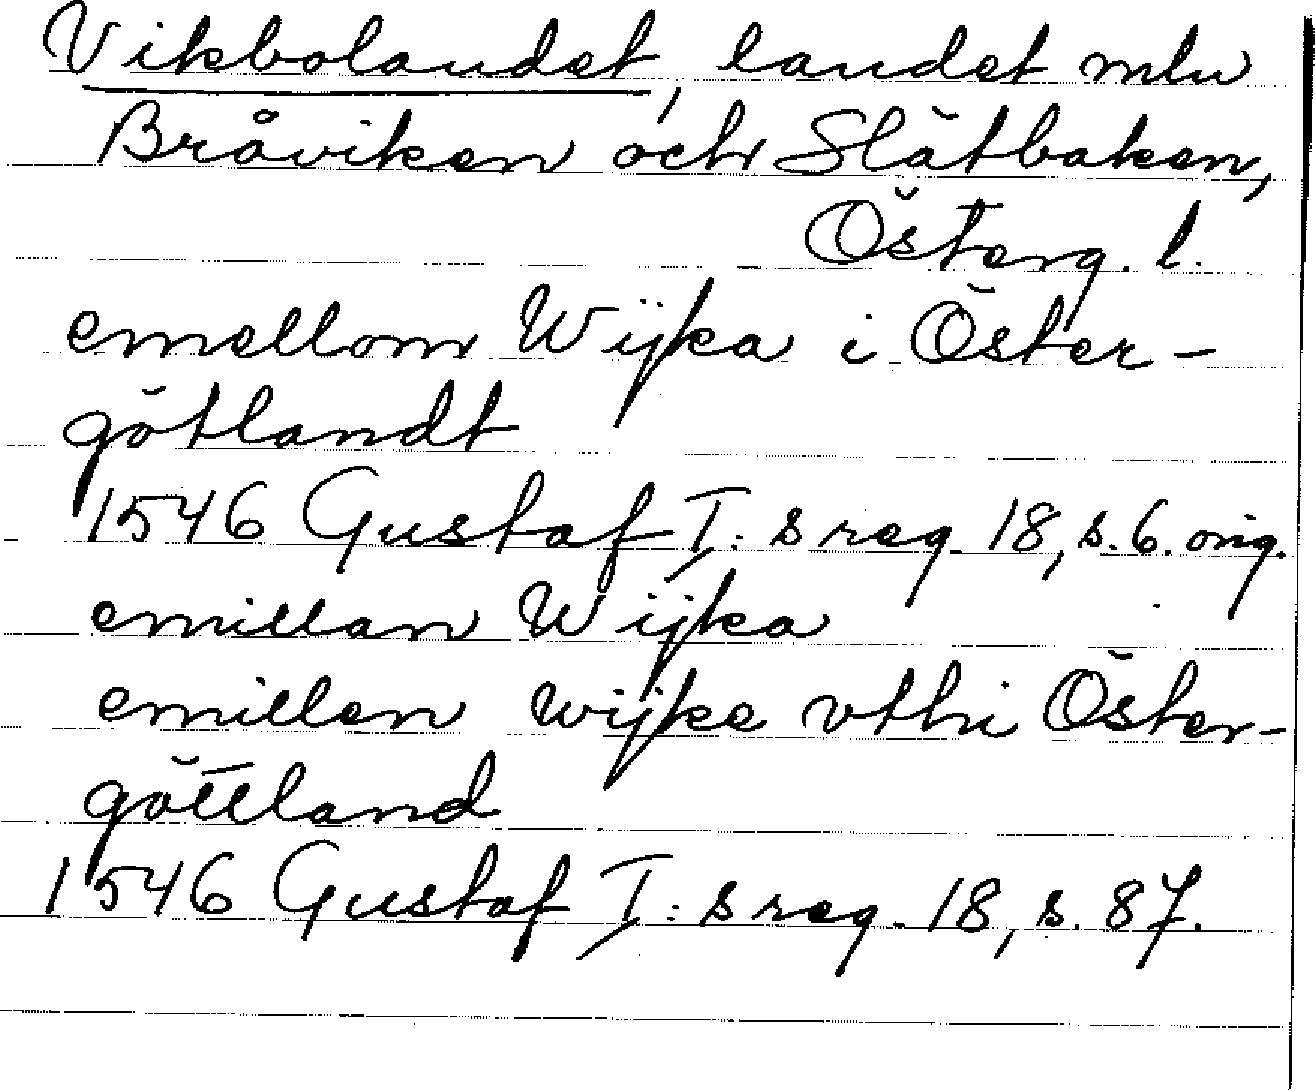 Vikbolandet, landet mln
Bråviken och Slätbaken,
Österg. l.
emellom Wijka i Öster-
götlandt
1546 Gustaf I:s reg. 18, s. 6. orig.
emillan Wijka
emillen wijke vthi Öster-
göttland
1546 Gustaf I:s reg. 18, s. 87.